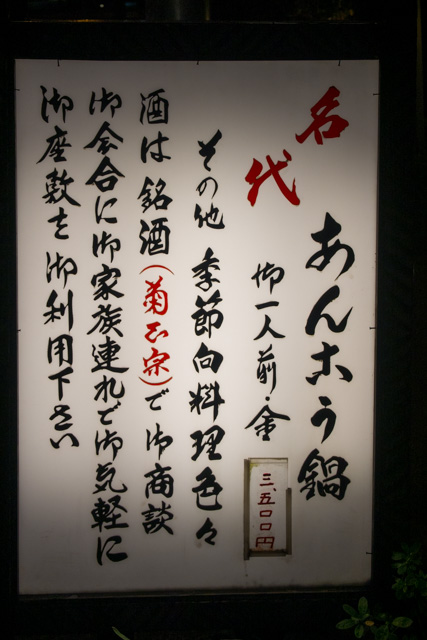 名代
あんこう鍋
御一人前・金
三、五〇〇円
その他 季節向料理色々
酒は銘酒(菊正宗)で御商談
御会合に御家族連れで御気軽に
御座敷を御利用下さい